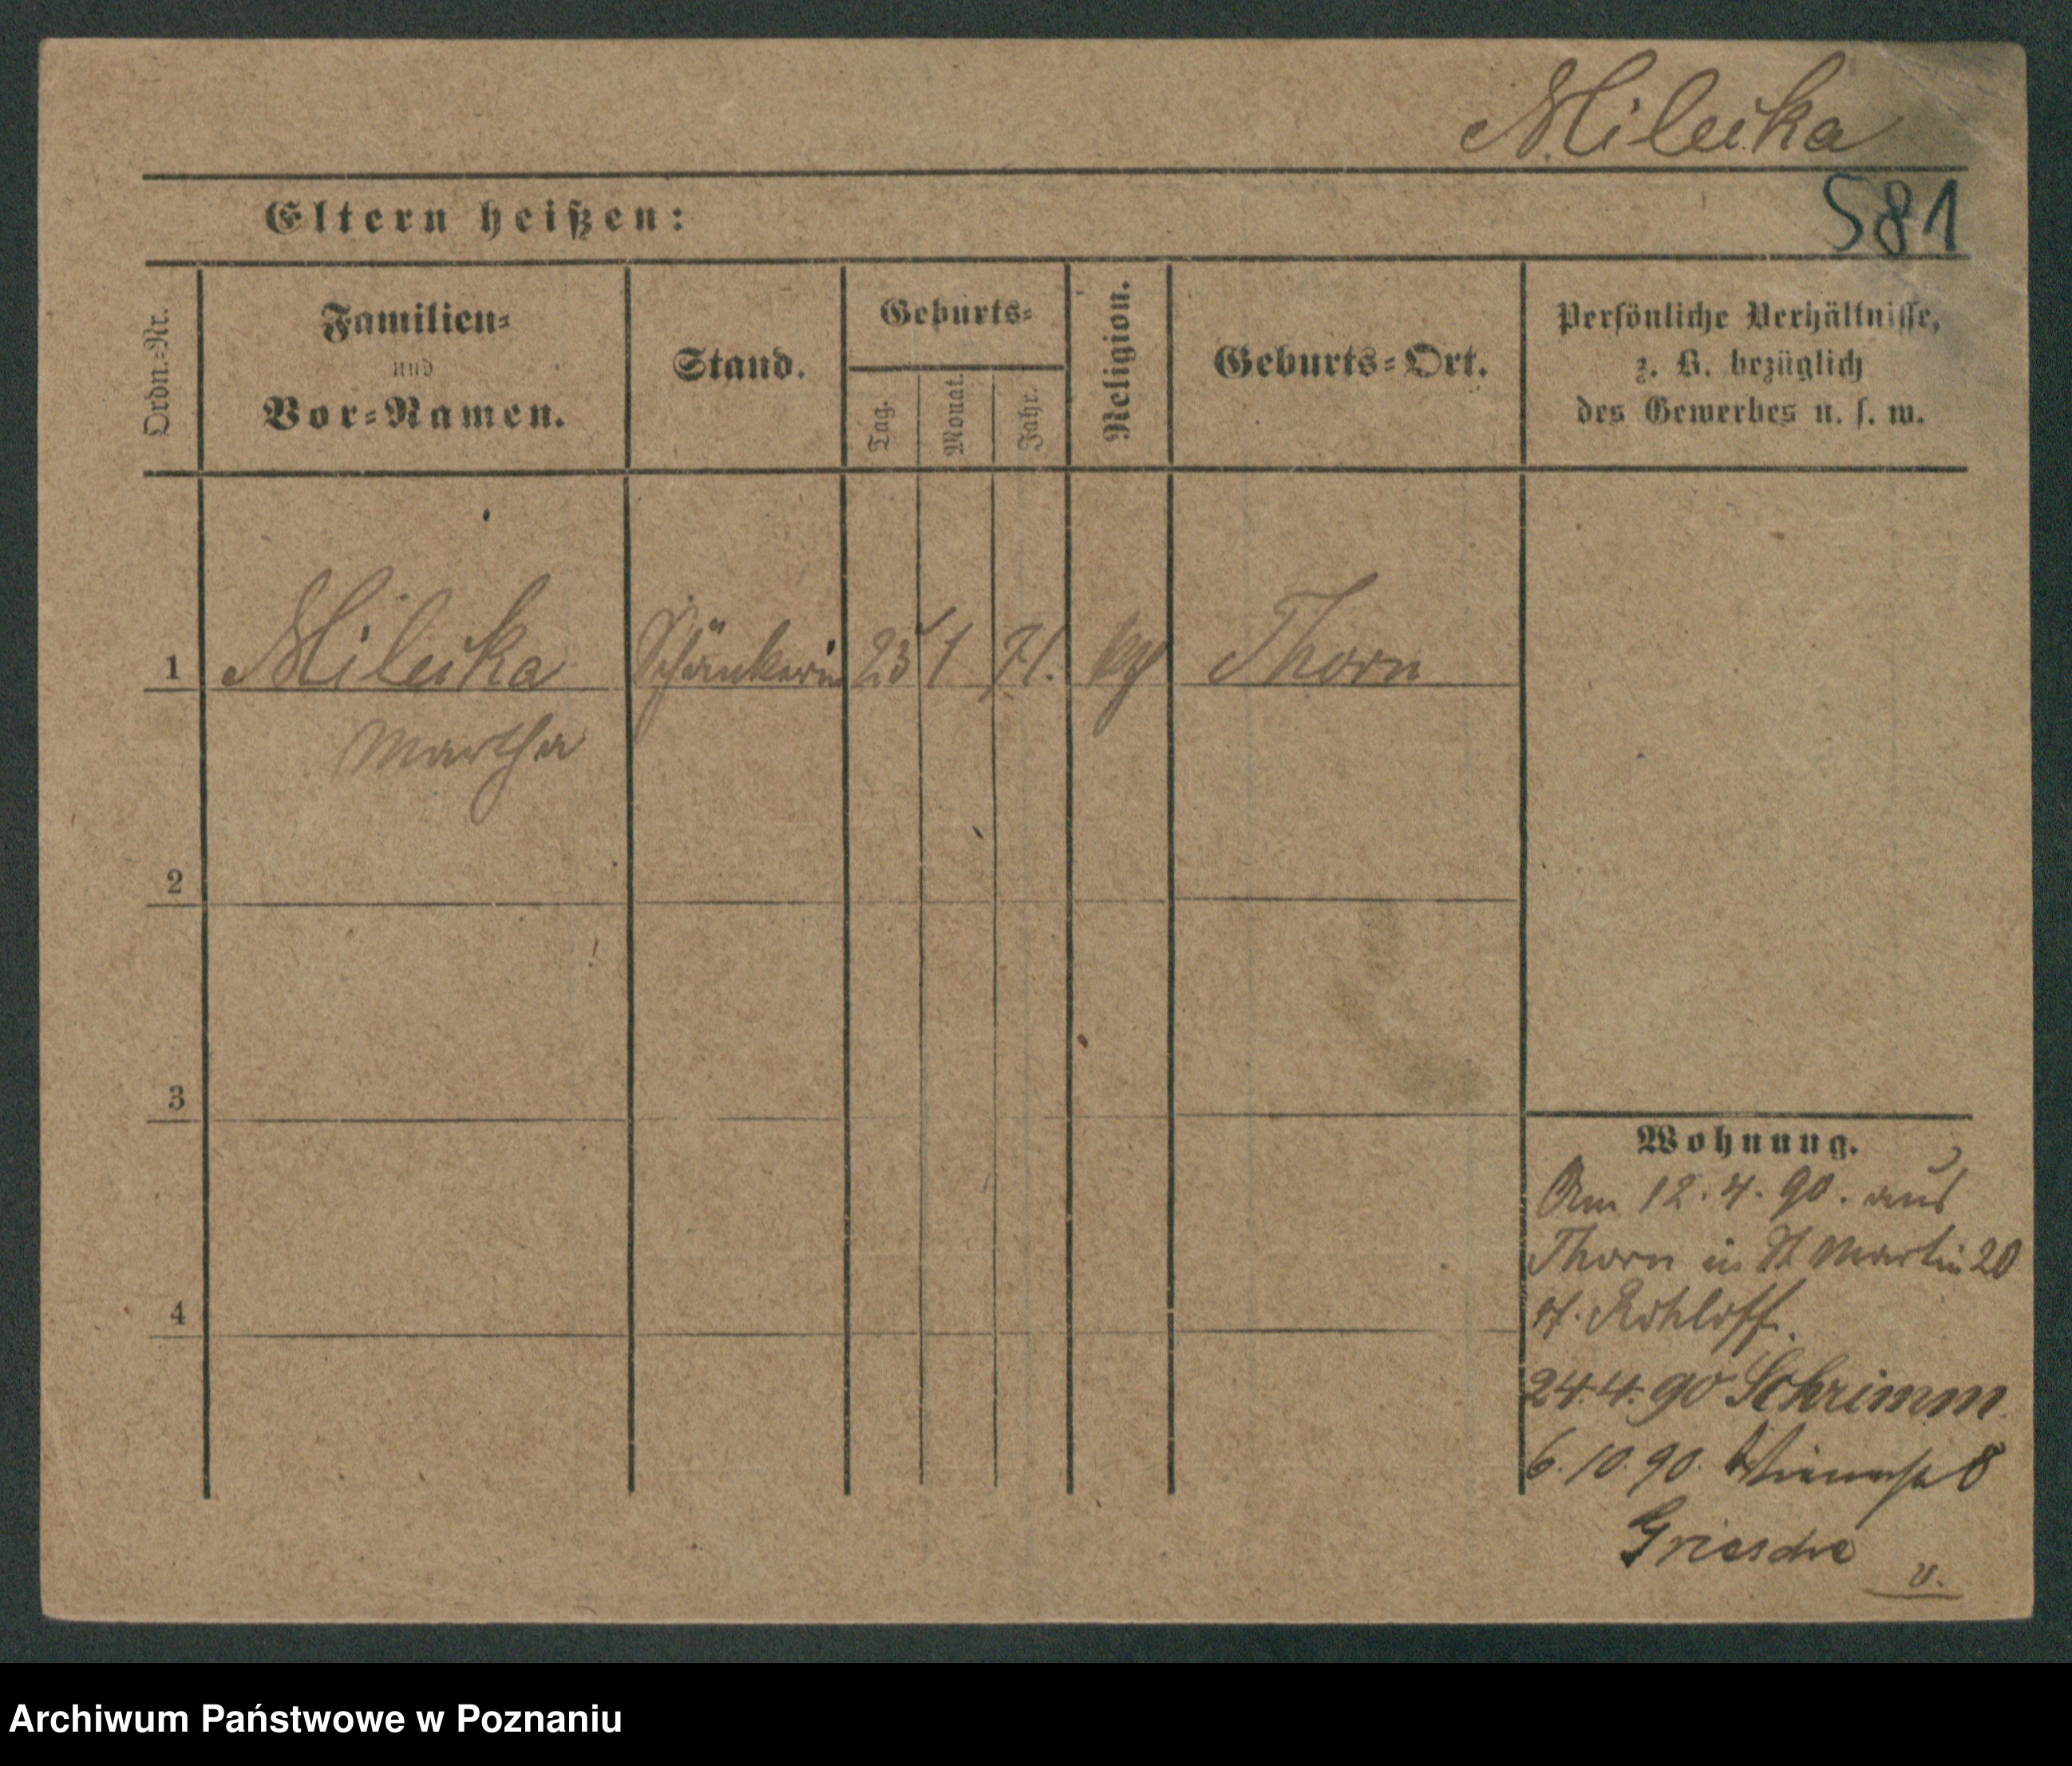 Mileika
581
Eltern heißen:
Ordn.-Nr.
Familien-
und
Vor-Namen.
Stand.
Geburts-
Tag.
Monat.
Jahr.
Religion.
Geburts-Ort.
Persönliche Verhältnisse,
z. B. bezüglich
des Gewerbes u. s. w.
1 Mileika Schänkerin 25 1 71. Thorn
Martha
2
3
4
Wohnung.
Am 12.4.90. aus
Thorn in St Martin 20
Rohloff.
24.4.90 Schrimm
6.10.90. 8
Griesche
v.
Archiwum Państwowe w Poznaniu